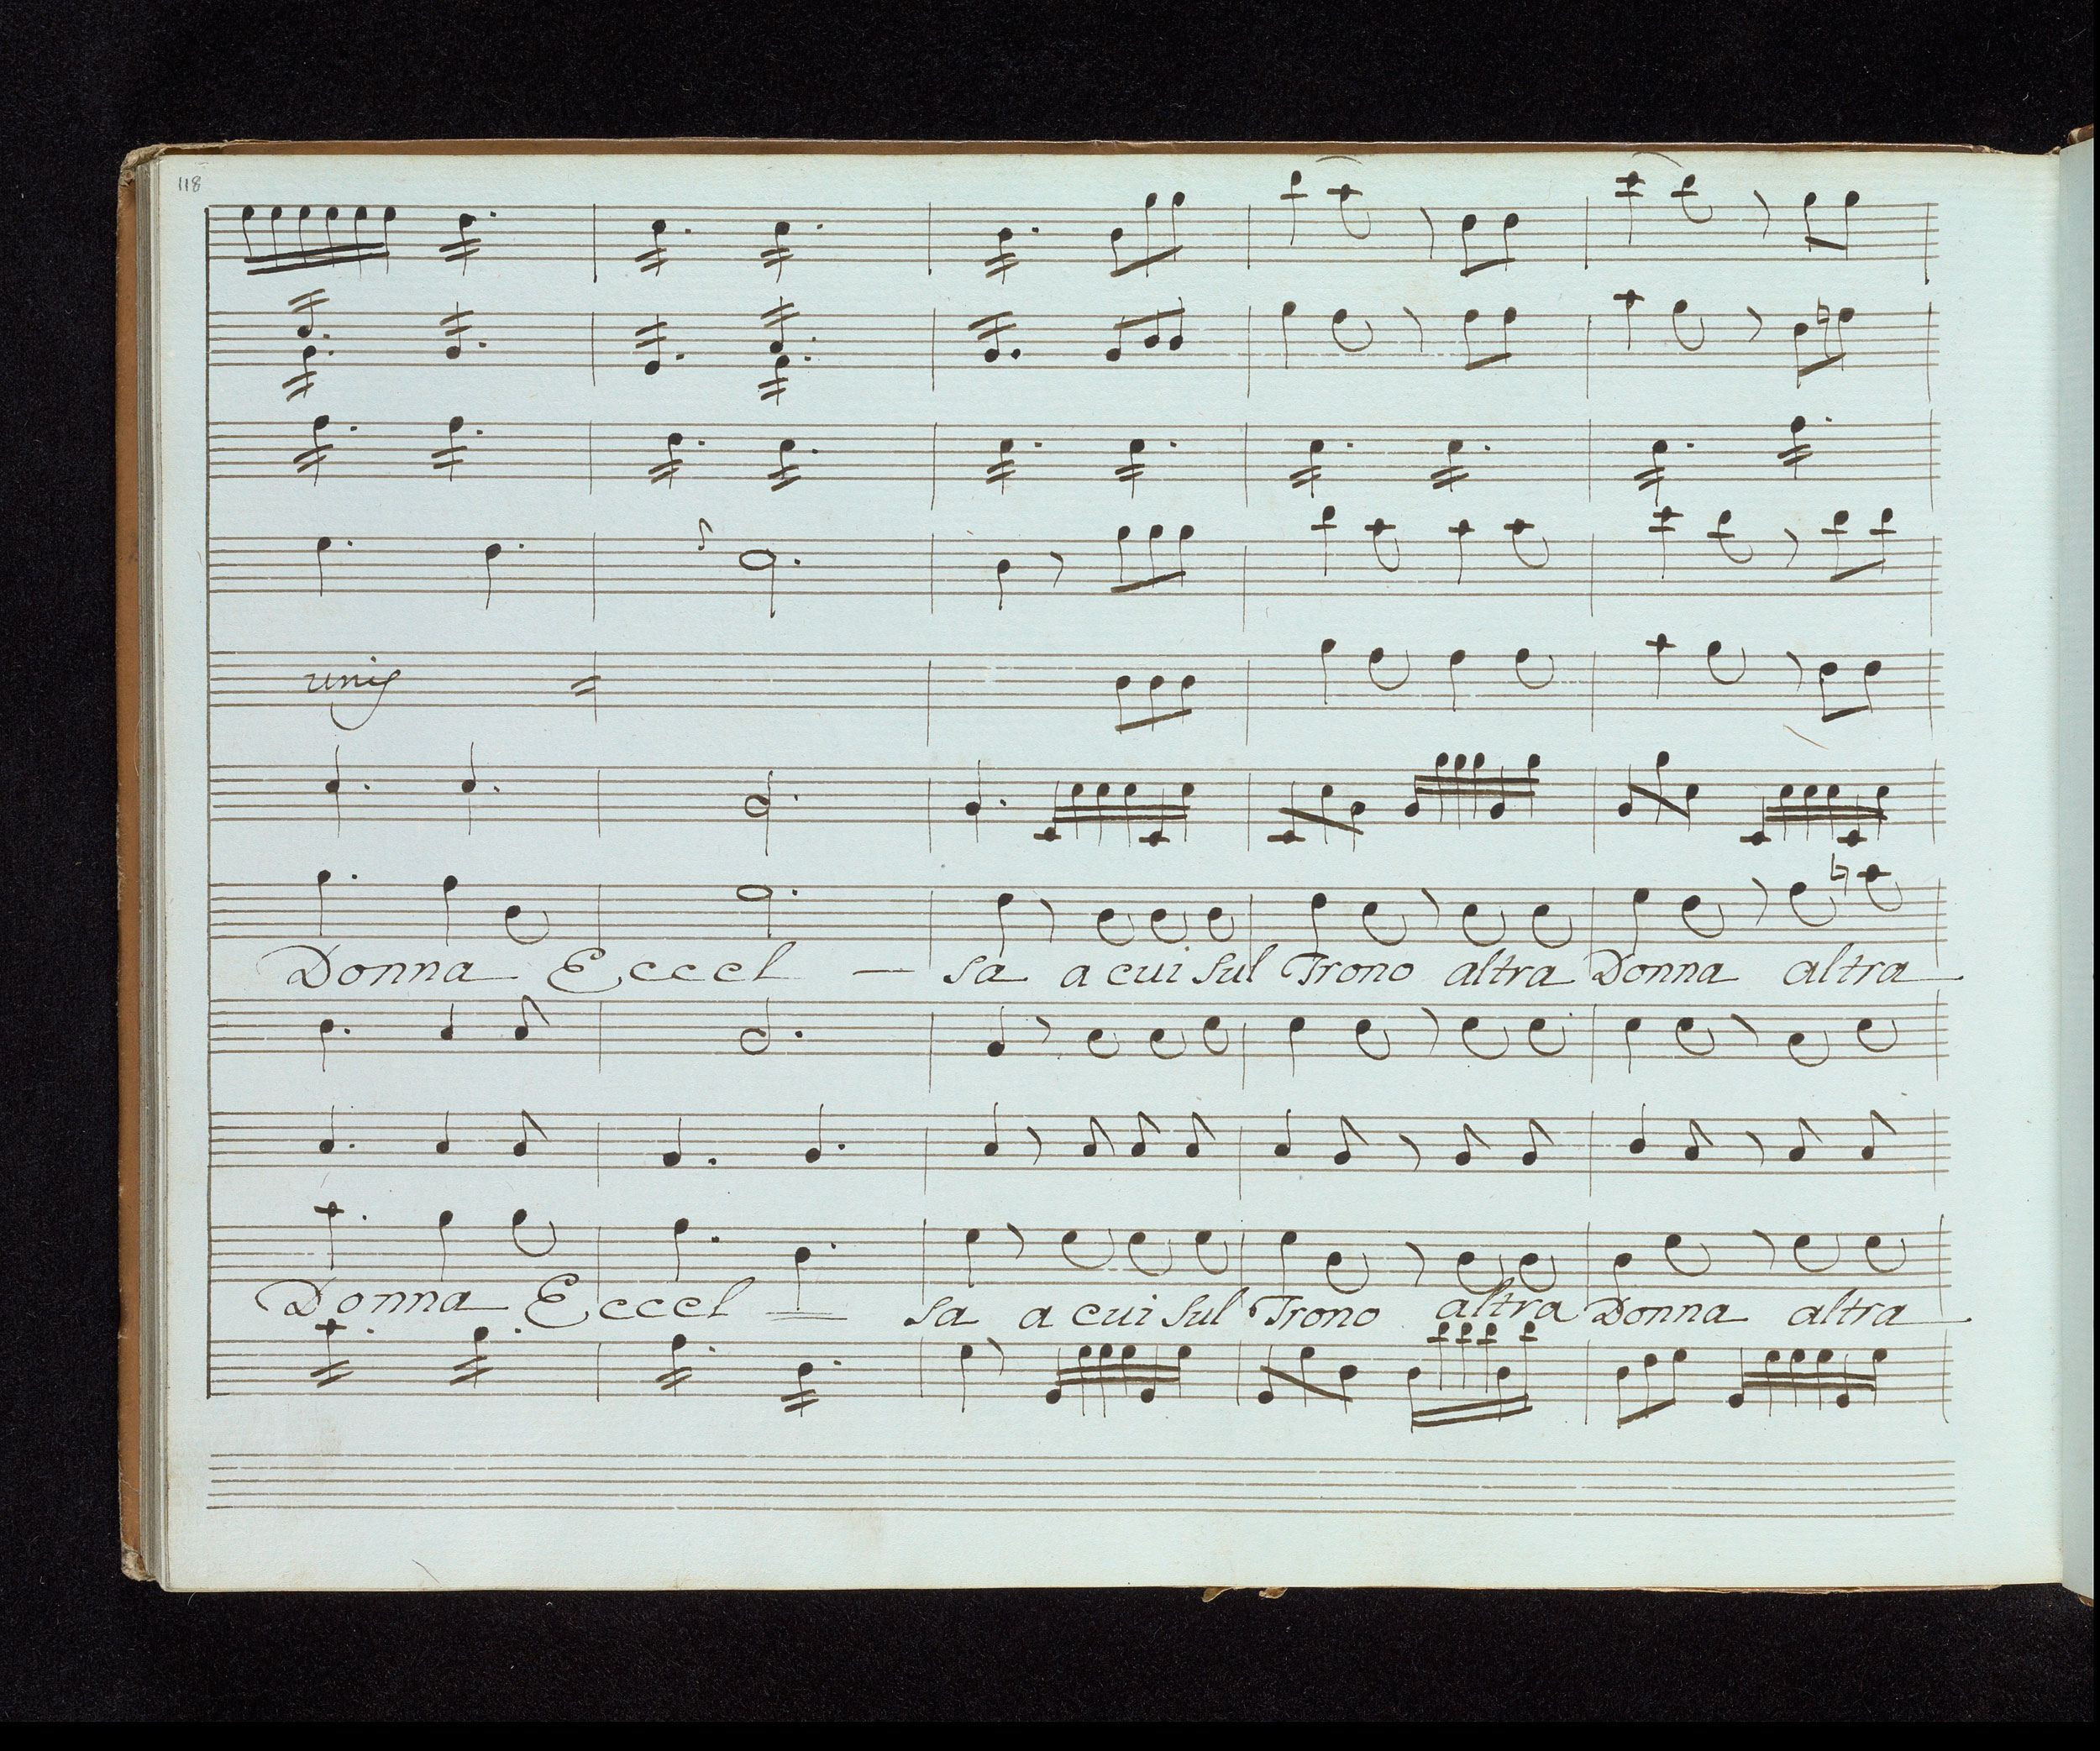 118
unis
Donna Eccel — sa a cui sul Trono altra Donna altra
Donna Eccel — sa a cui sul Trono altra Donna altra